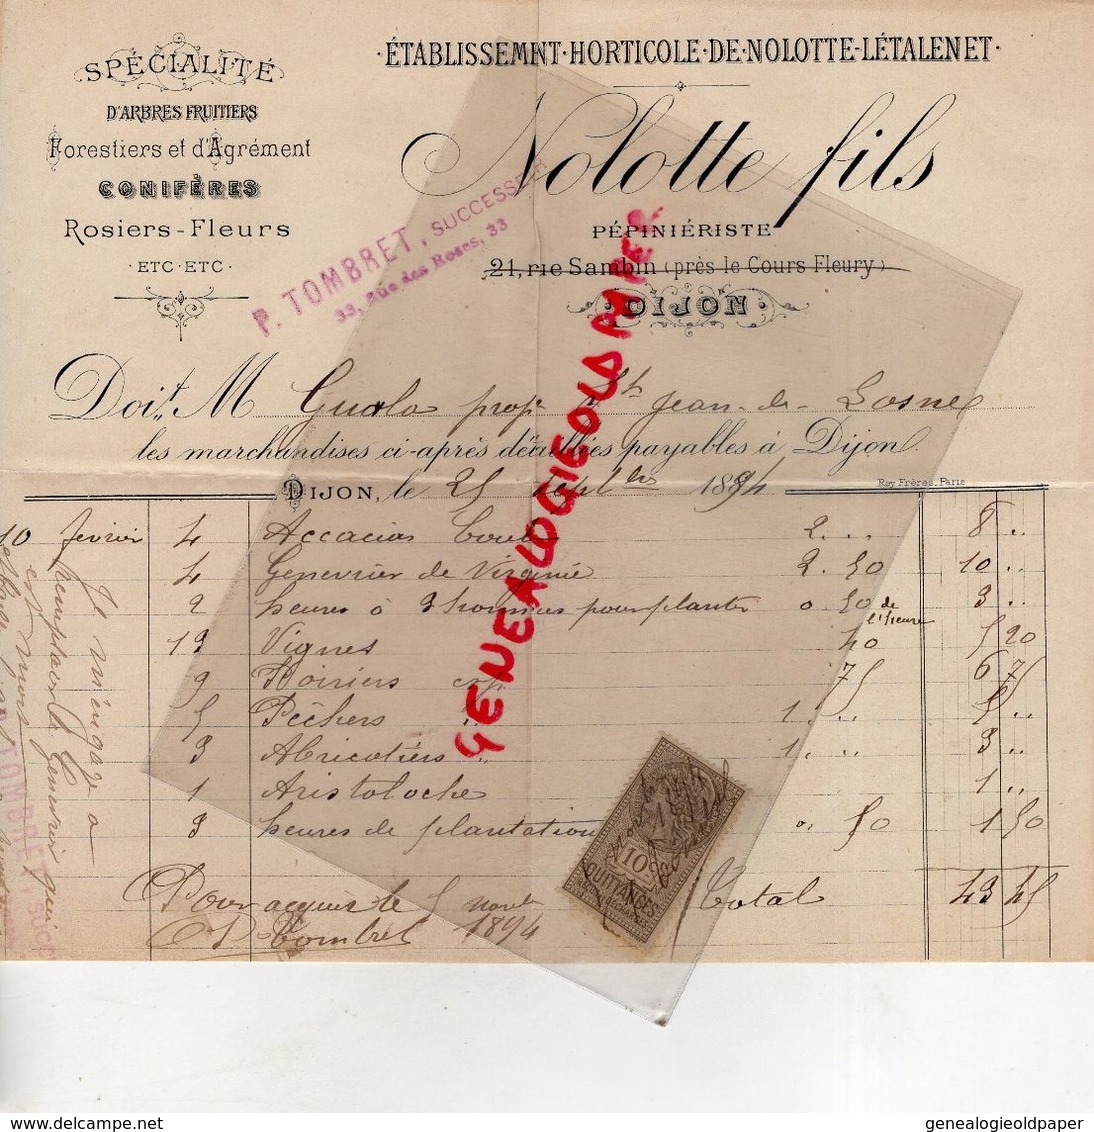 ·ÉTABLISSEMNT·HORTICOLE·DE·NOLOTTE-LÉTALENET·
SPÉCIALITÉ
D'ARBRES FRUITIERS
Forestiers et d'Agrément
CONIFÈRES
Rosiers-Fleurs
·ETC·ETC·
Nolotte fils
PÉPINIÉRISTE
21, rue Sambin (près le Cours Fleury)
DIJON
P. TOMBRET, SUCCESSEUR
33, Rue des Roses, 33
Doit M Guala prop. St Jean-de-Losne
les marchandises ci-après détaillées payables à Dijon.
DIJON, le 25 Septbre 1894
Rey Frères, Paris
10 février 4 Accacias boule 2... 8..
4 Genevrier de Virginie 2.50 10..
2 heures à 3 hommes pour planter 0.50 de l'heure 3..
13 Vignes 40 5 20
9 Poiriers 75 6 75
5 Pêchers " 1... 5..
3 Abricotiers " 1... 3..
1 Aristoloche 1..
3 heures de plantation 0.50 1 50
Total 43 45
Pour acquis le 5 novbre
1894
P. Tombret
Je m'engage a
Remplacer le Genevrier qui
est mort
P. TOMBRET, SUCC
10 c
QUITTANCES
REÇUS & DÉCHARGES
GENEALOGIEOLDPAPER
genealogieoldpaper